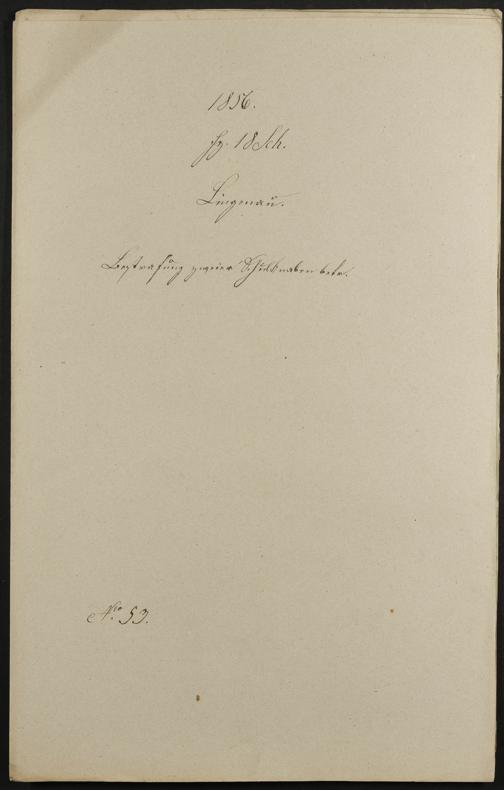 1856.
Fz. 18 Sch.
Lingenau.
Bestrafung zweier Schulknaben betr.
No. 53.